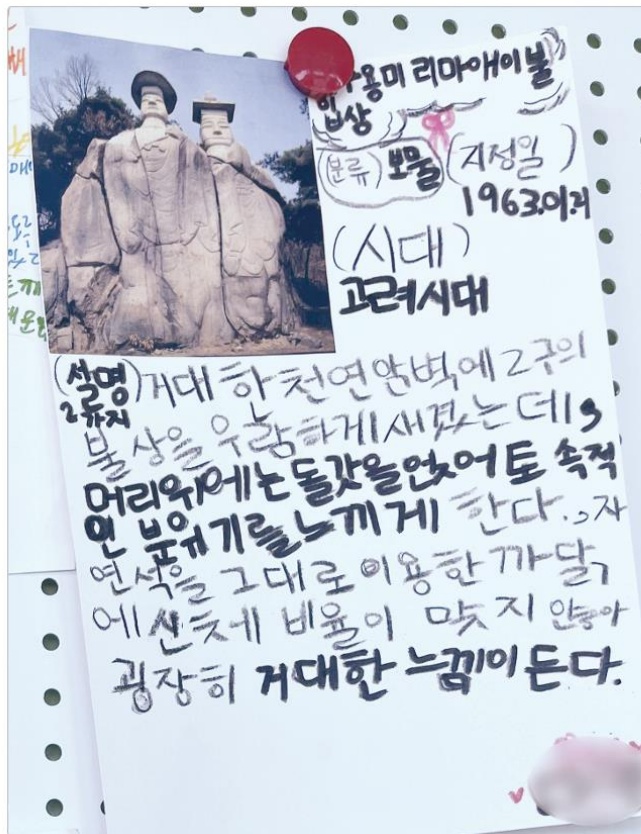 용미리마애이불
입상
(분류) 보물 (지정일)
1963.01.21
(시대)
고려시대
(설명) 거대한 천연암벽에 2구의
2류지
불상을 우람하게 새겼는데,
머리위에는 돌갓을 얹어 토속적
인 분위기를 느끼게 한다. 자
연석을 그대로 이용한 까닭
에 신체 비율이 맞지 않아
굉장히 거대한 느낌이 든다.